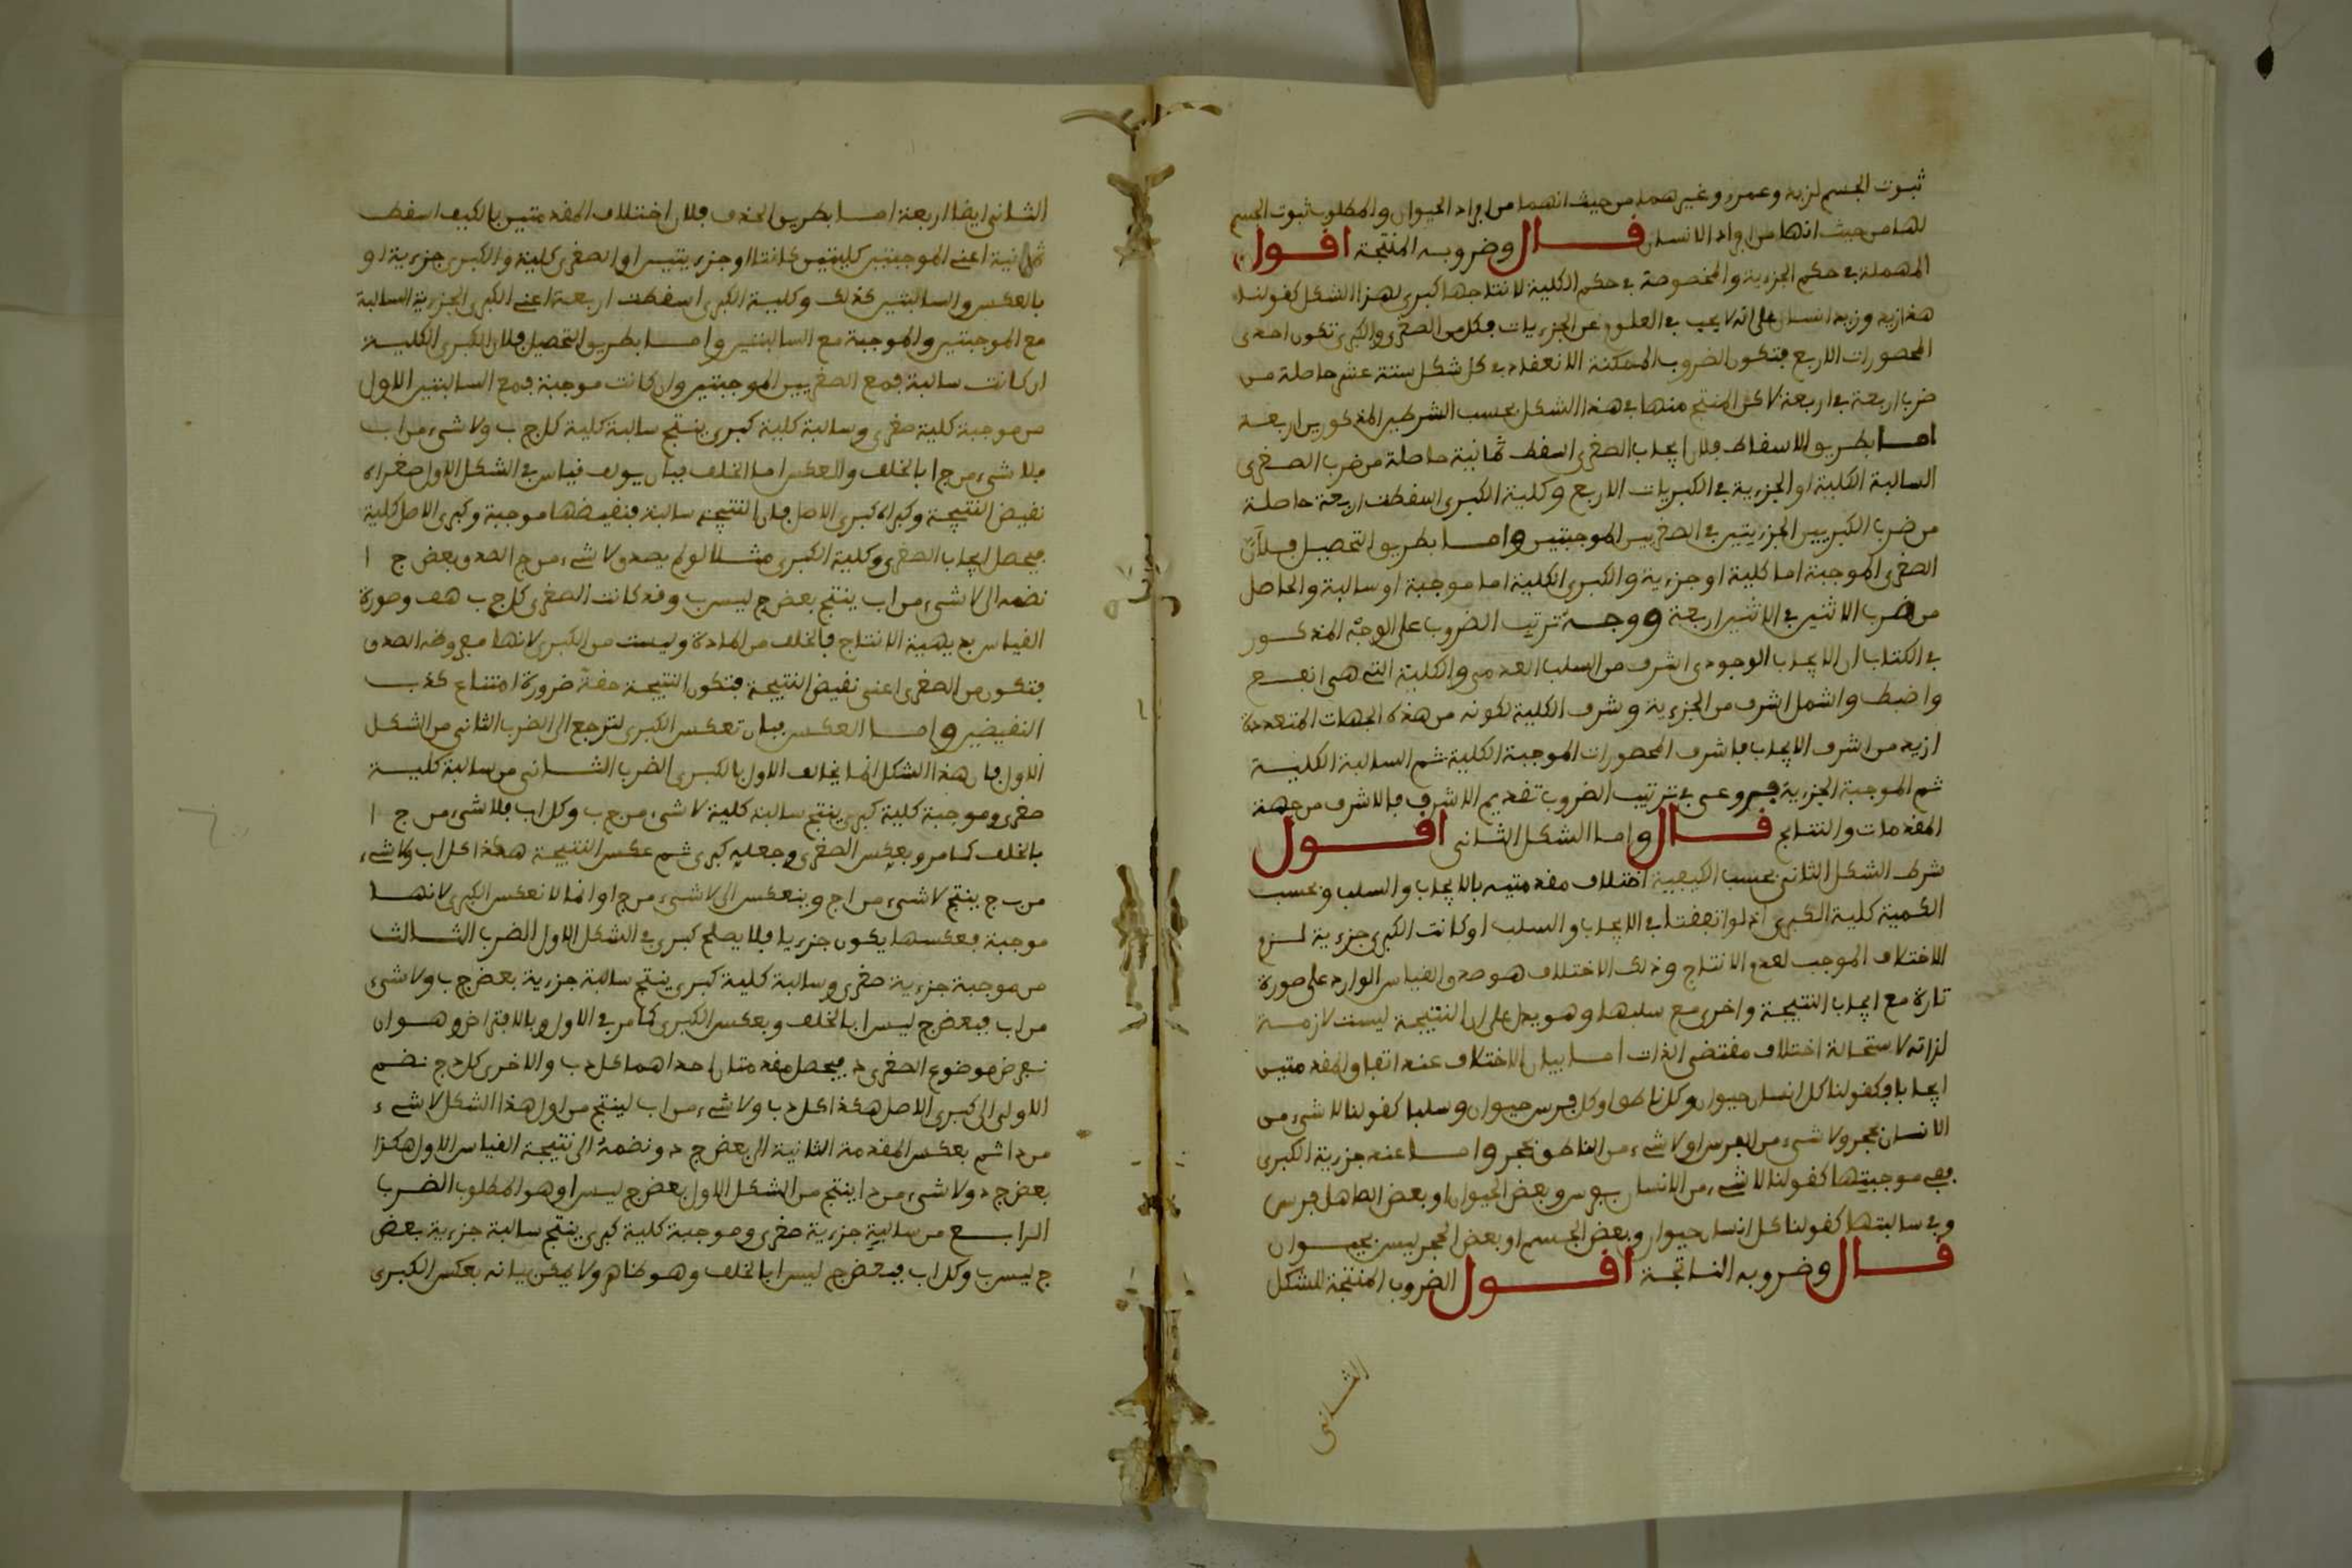 ثبوت الجسم لزيد وعمرو وغيرهما من حيث انهما من افراد الحيوان والمطلوب ثبوت الجسم
لهما من حيث انهما من افراد الانسان قال وضروبه المنتجة اقول
المهملة في حكم الجزءية والمخصوصة في حكم الكلية لانتاجها كبرى لهذا الشكل كقولنا
هذا زيد وزيد انسان على انه لا يبحث في العلوم عن الجزءيات فكل من الصغرى والكبرى تكون احدى
المحصورات الاربع فتكون الضروب الممكنة الانعقاد في كل شكل ستة عشر حاصلة من
ضرب اربعة في اربعة لاكن المنتج منها في هذا الشكل بحسب الشرطين المذكورين اربعة
اما بطريق الاسقاط فلان ايجاب الصغرى اسقط ثمانية حاصلة من ضرب الصغرى
السالبة الكلية او الجزءية في الكبريات الاربع وكلية الكبرى اسقطت اربعة حاصلة
من ضرب الكبريين الجزءيتين في الصغريين الموجبتين واما بطريق التحصيل فلان
الصغرى الموجبة اما كلية او جزءية والكبرى الكلية اما موجبة او سالبة والحاصل
من ضرب الاثنين في الاثنين اربعة ووجه ترتيب الضروب على الوجه المذكور
في الكتاب ان الايجاب الوجودي اشرف من السلب العدمي والكلية التي هي انفع
واضبط واشمل اشرف من الجزءية وشرف الكلية لكونه من هذه الجهات المتعددة
ازيد من شرف الايجاب فاشرف المحصورات الموجبة الكلية ثم السالبة الكلية
ثم الموجبة الجزءية فروعي في ترتيب الضروب تقديم الاشرف فالاشرف من جهة
المقدمات والنتايج قال واما الشكل الثاني اقول
شرط الشكل الثاني بحسب الكيفية اختلاف مقدمتيه بالايجاب والسلب وبحسب
الكمية كلية الكبرى اذ لو اتفقتا في الايجاب والسلب او كانت الكبرى جزءية لزم
الاختلاف الموجب لعدم الانتاج وذلك الاختلاف هو صدق القياس الوارد على صورة
تارة مع ايجاب النتيجة واخرى مع سلبها وهو يدل على ان النتيجة ليست لازمة
لذاته لاستحالة اختلاف مقتضى الذات اما بيان الاختلاف عند اتفاق المقدمتين
ايجابا فكقولنا كل انسان حيوان وكل ناطق او كل فرس حيوان وسلبا كقولنا لا شيء من
الانسان بحجر ولا شيء من الفرس او لا شيء من الناطق بحجر واما عند جزءية الكبرى
ففي موجبتها كقولنا لا شيء من الانسان بفرس وبعض الحيوان او بعض الصاهل فرس
وفي سالبتها كقولنا كل انسان حيوان وبعض الجسم او بعض الحجر ليس بحيوان
قال وضروبه الناتجة اقول الضروب المنتجة للشكل
الثاني
الثاني ايضا اربعة اما بطريق الحذف فلان اختلاف المقدمتين بالكيف اسقط
ثمانية اعني الموجبتين كليتين كانتا او جزءيتين او الصغرى كلية والكبرى جزءية او
بالعكس والسالبتين كذلك وكلية الكبرى اسقطت اربعة اعني الكبرى الجزءية السالبة
مع الموجبتين والموجبة مع السالبتين واما بطريق التحصيل فلان الكبرى الكلية
ان كانت سالبة فمع الصغريين الموجبتين وان كانت موجبة فمع السالبتين الاول
من موجبة كلية صغرى وسالبة كلية كبرى ينتج سالبة كلية كل ج ب ولا شيء من ا ب
فلا شيء من ج ا بالخلف والعكس اما الخلف فبان يولف قياس في الشكل الاول صغراه
نقيض النتيجة وكبراه كبرى الاصل فلان النتيجة سالبة فنقيضها موجبة وكبرى الاصل كلية
فيحصل ايجاب الصغرى وكلية الكبرى مثلا لو لم يصدق لا شيء من ج ا لصدق بعض ج ا
نضمه الى لا شيء من ا ب ينتج بعض ج ليس ب وقد كانت الصغرى كل ج ب هف وصورة
القياس بديهية الانتاج فالخلف من المادة وليست من الكبرى لانها مفروضة الصدق
فتكون من الصغرى اعني نقيض النتيجة فتكون النتيجة حقة ضرورة امتناع كذب
النقيضين واما العكس فبان تعكس الكبرى لترجع الى الضرب الثاني من الشكل
الاول فان هذا الشكل انما يخالف الاول بالكبرى الضرب الثاني من سالبة كلية
صغرى وموجبة كلية كبرى ينتج سالبة كلية لا شيء من ج ب وكل ا ب فلا شيء من ج ا
بالخلف كما مر وبعكس الصغرى وجعله كبرى ثم عكس النتيجة هكذا كل ا ب ولا شيء
من ب ج ينتج لا شيء من ا ج وينعكس الى لا شيء من ج ا وانما لا نعكس الكبرى لانها
موجبة فعكسها يكون جزءيا فلا يصلح كبرى في الشكل الاول الضرب الثالث
من موجبة جزءية صغرى وسالبة كلية كبرى ينتج سالبة جزءية بعض ج ب ولا شيء
من ا ب فبعض ج ليس ا بالخلف وبعكس الكبرى كما مر في الاول وبالافتراض وهو ان
نفرض موضوع الصغرى د فيحصل مقدمتان احداهما كل د ب والاخرى كل د ج نضم
الاولى الى كبرى الاصل هكذا كل د ب ولا شيء من ا ب لينتج من اول هذا الشكل لا شيء
من د ا ثم بعكس المقدمة الثانية الى بعض ج د ونضمه الى نتيجة القياس الاول هكذا
بعض ج د ولا شيء من د ا ينتج من الشكل الاول بعض ج ليس ا وهو المطلوب الضرب
الرابع من سالبة جزءية صغرى وموجبة كلية كبرى ينتج سالبة جزءية بعض
ج ليس ب وكل ا ب فبعض ج ليس ا بالخلف وهو ظاهر ولا يمكن بيانه بعكس الكبرى